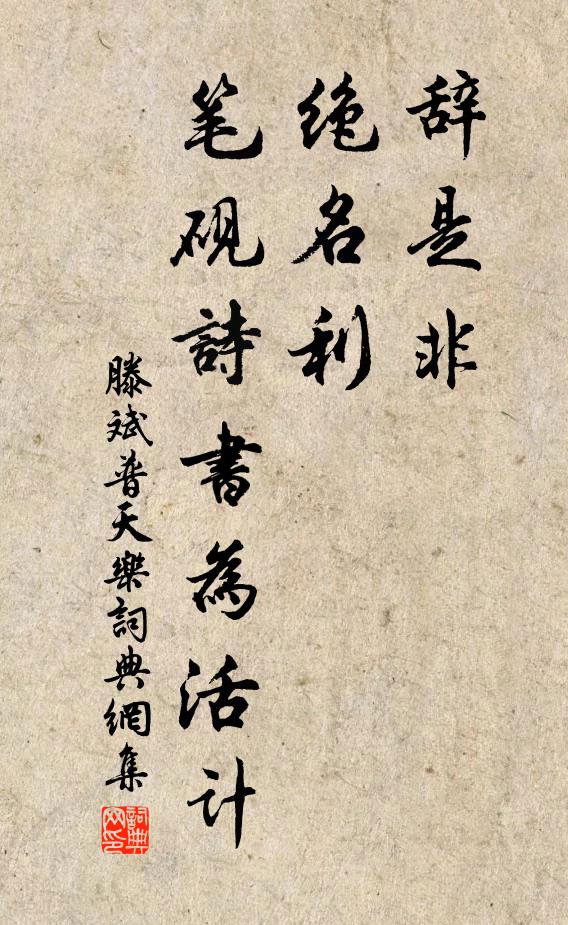 辞是非
绝名利
笔砚詩書為活计
滕斌普天樂詞典網集
詞典网印